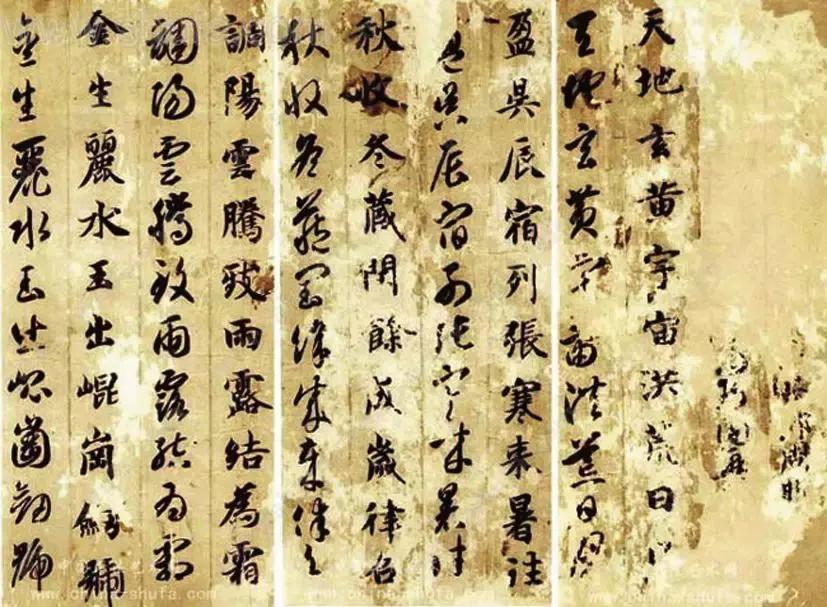 天地玄黄宇宙洪荒日月
天地玄黄宇宙洪荒日月
盈昃辰宿列張寒来暑往
盈昃辰宿列張寒来暑往
秋收冬藏閏餘成歲律召
秋收冬藏閏餘成歲律召
調陽雲騰致雨露結為霜
調陽雲騰致雨露結為霜
金生麗水玉出崐崗劒號
金生麗水玉出崐崗劒號
www.china-shufa.com